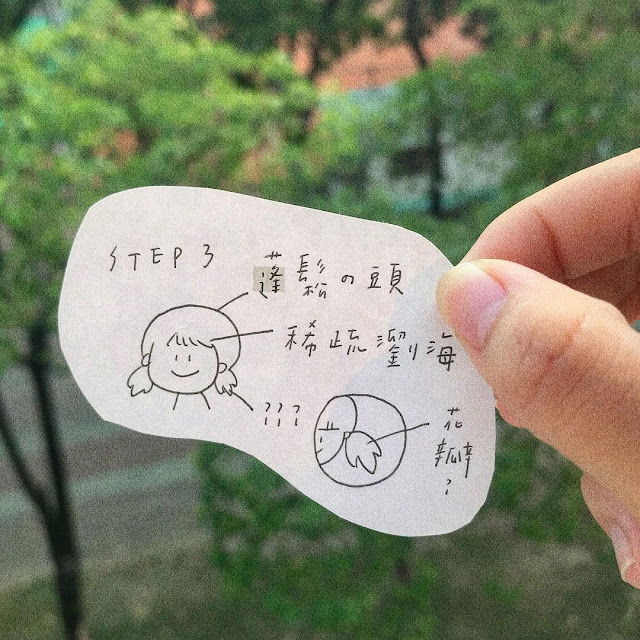 STEP 3
蓬鬆の頭
稀疏瀏海
???
花
瓣
?